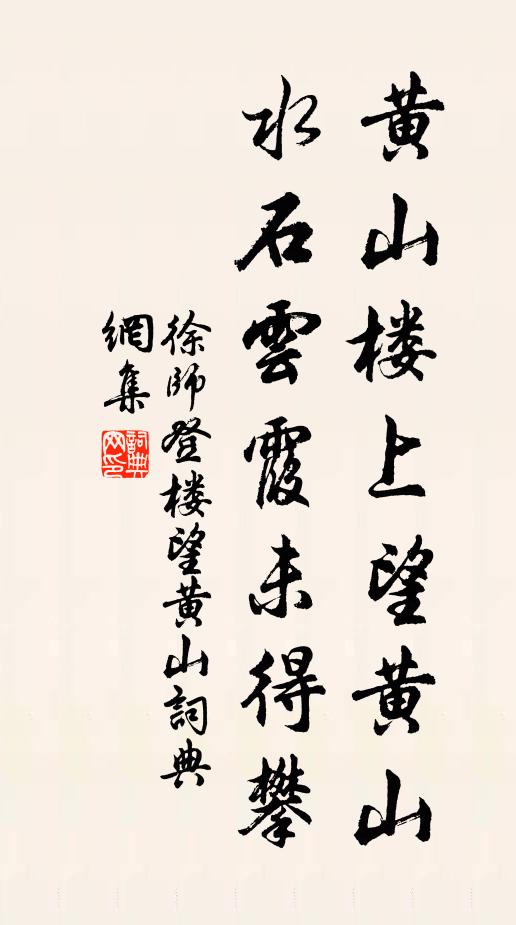 黄山楼上望黄山
水石雲霞未得攀
徐师登楼望黄山詞典
網集
詞典
网印